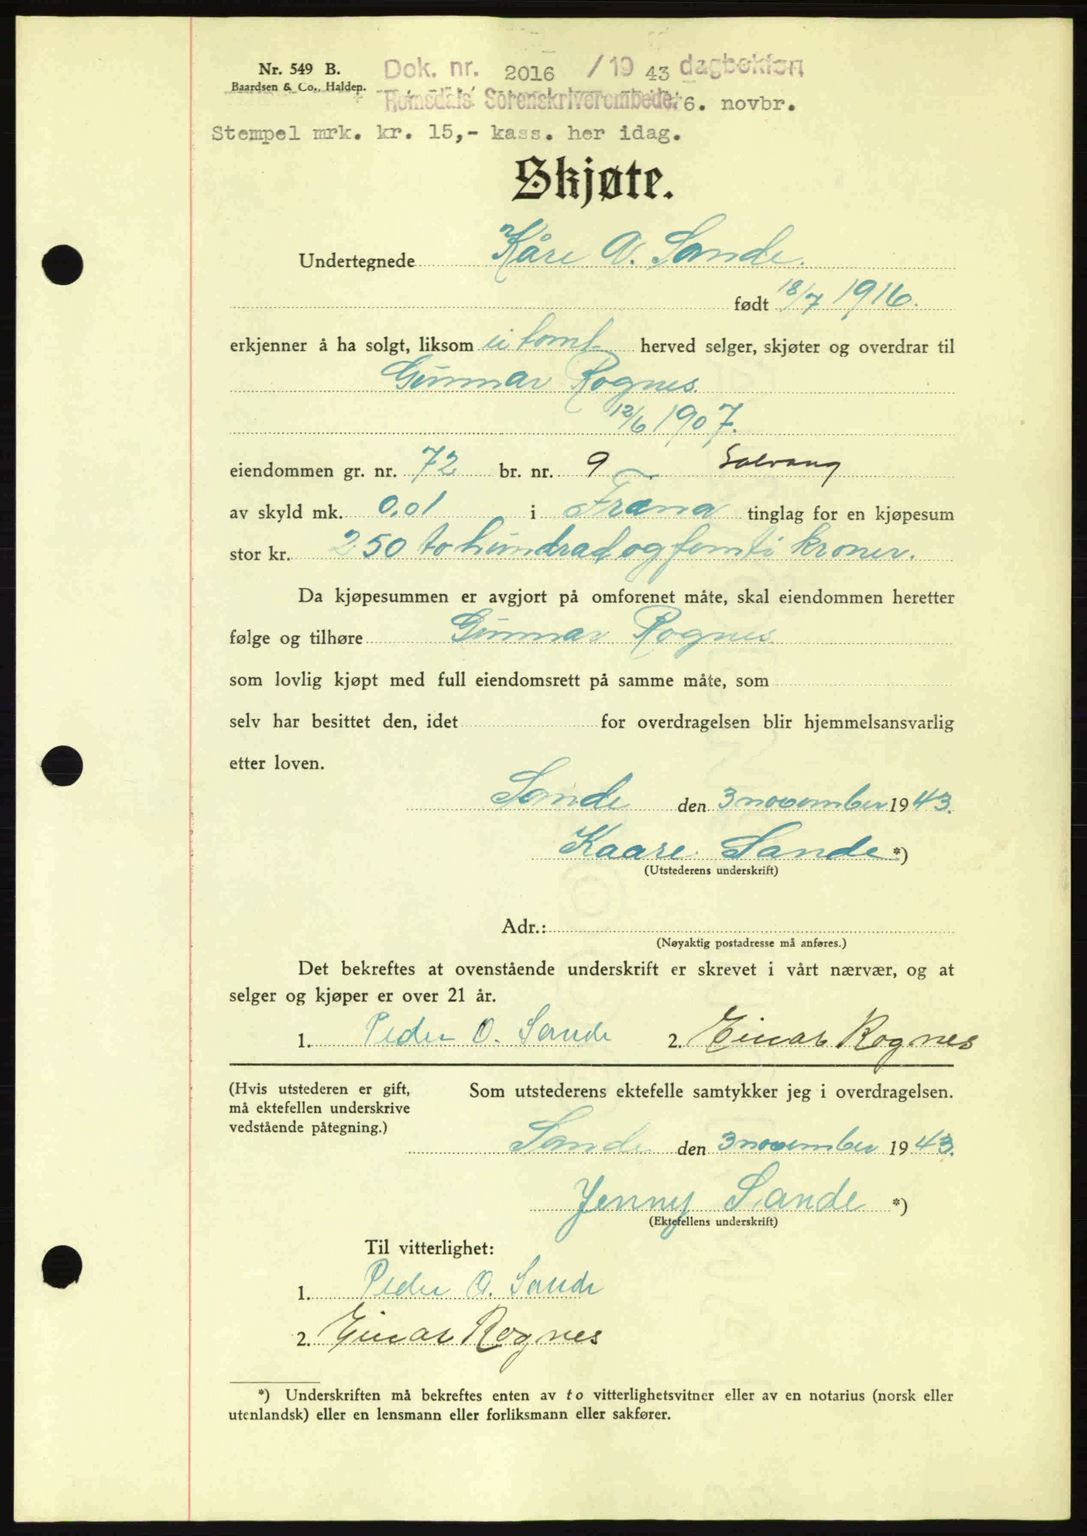 Nr. 549 B.
Baardsen & Co., Halden.
Dok. nr. 2016 /19 43 dagbokføn
Romsdals Sorenskriverembede. 6. novbr.
Stempel mrk. kr. 15,- kass. her idag.
Skjøte.
Undertegnede Kåre A. Sande.
født 18/7 1916.
erkjenner å ha solgt, liksom ei tomt herved selger, skjøter og overdrar til
Gunnar Rognes.
12/6 1907.
eiendommen gr. nr. 72 br. nr. 9 Solvang
av skyld mk. 0,01 i Fræna tinglag for en kjøpesum
stor kr. 250 to hundrad og femti kroner.
Da kjøpesummen er avgjort på omforenet måte, skal eiendommen heretter
følge og tilhøre Gunnar Rognes
som lovlig kjøpt med full eiendomsrett på samme måte, som
selv har besittet den, idet for overdragelsen blir hjemmelsansvarlig
etter loven.
Sande den 3 november 1943.
Kaare Sande *)
(Utstederens underskrift)
Adr.:
(Nøyaktig postadresse må anføres.)
Det bekreftes at ovenstående underskrift er skrevet i vårt nærvær, og at
selger og kjøper er over 21 år.
1. Peder O. Sande 2. Einar Rognes
(Hvis utstederen er gift,
må ektefellen underskrive
vedstående påtegning.)
Som utstederens ektefelle samtykker jeg i overdragelsen.
Sande den 3 november 1943.
Jenny Sande *)
(Ektefellens underskrift)
Til vitterlighet:
1. Peder O. Sande
2. Einar Rognes
*) Underskriften må bekreftes enten av to vitterlighetsvitner eller av en notarius (norsk eller
utenlandsk) eller en lensmann eller forliksmann eller sakfører.